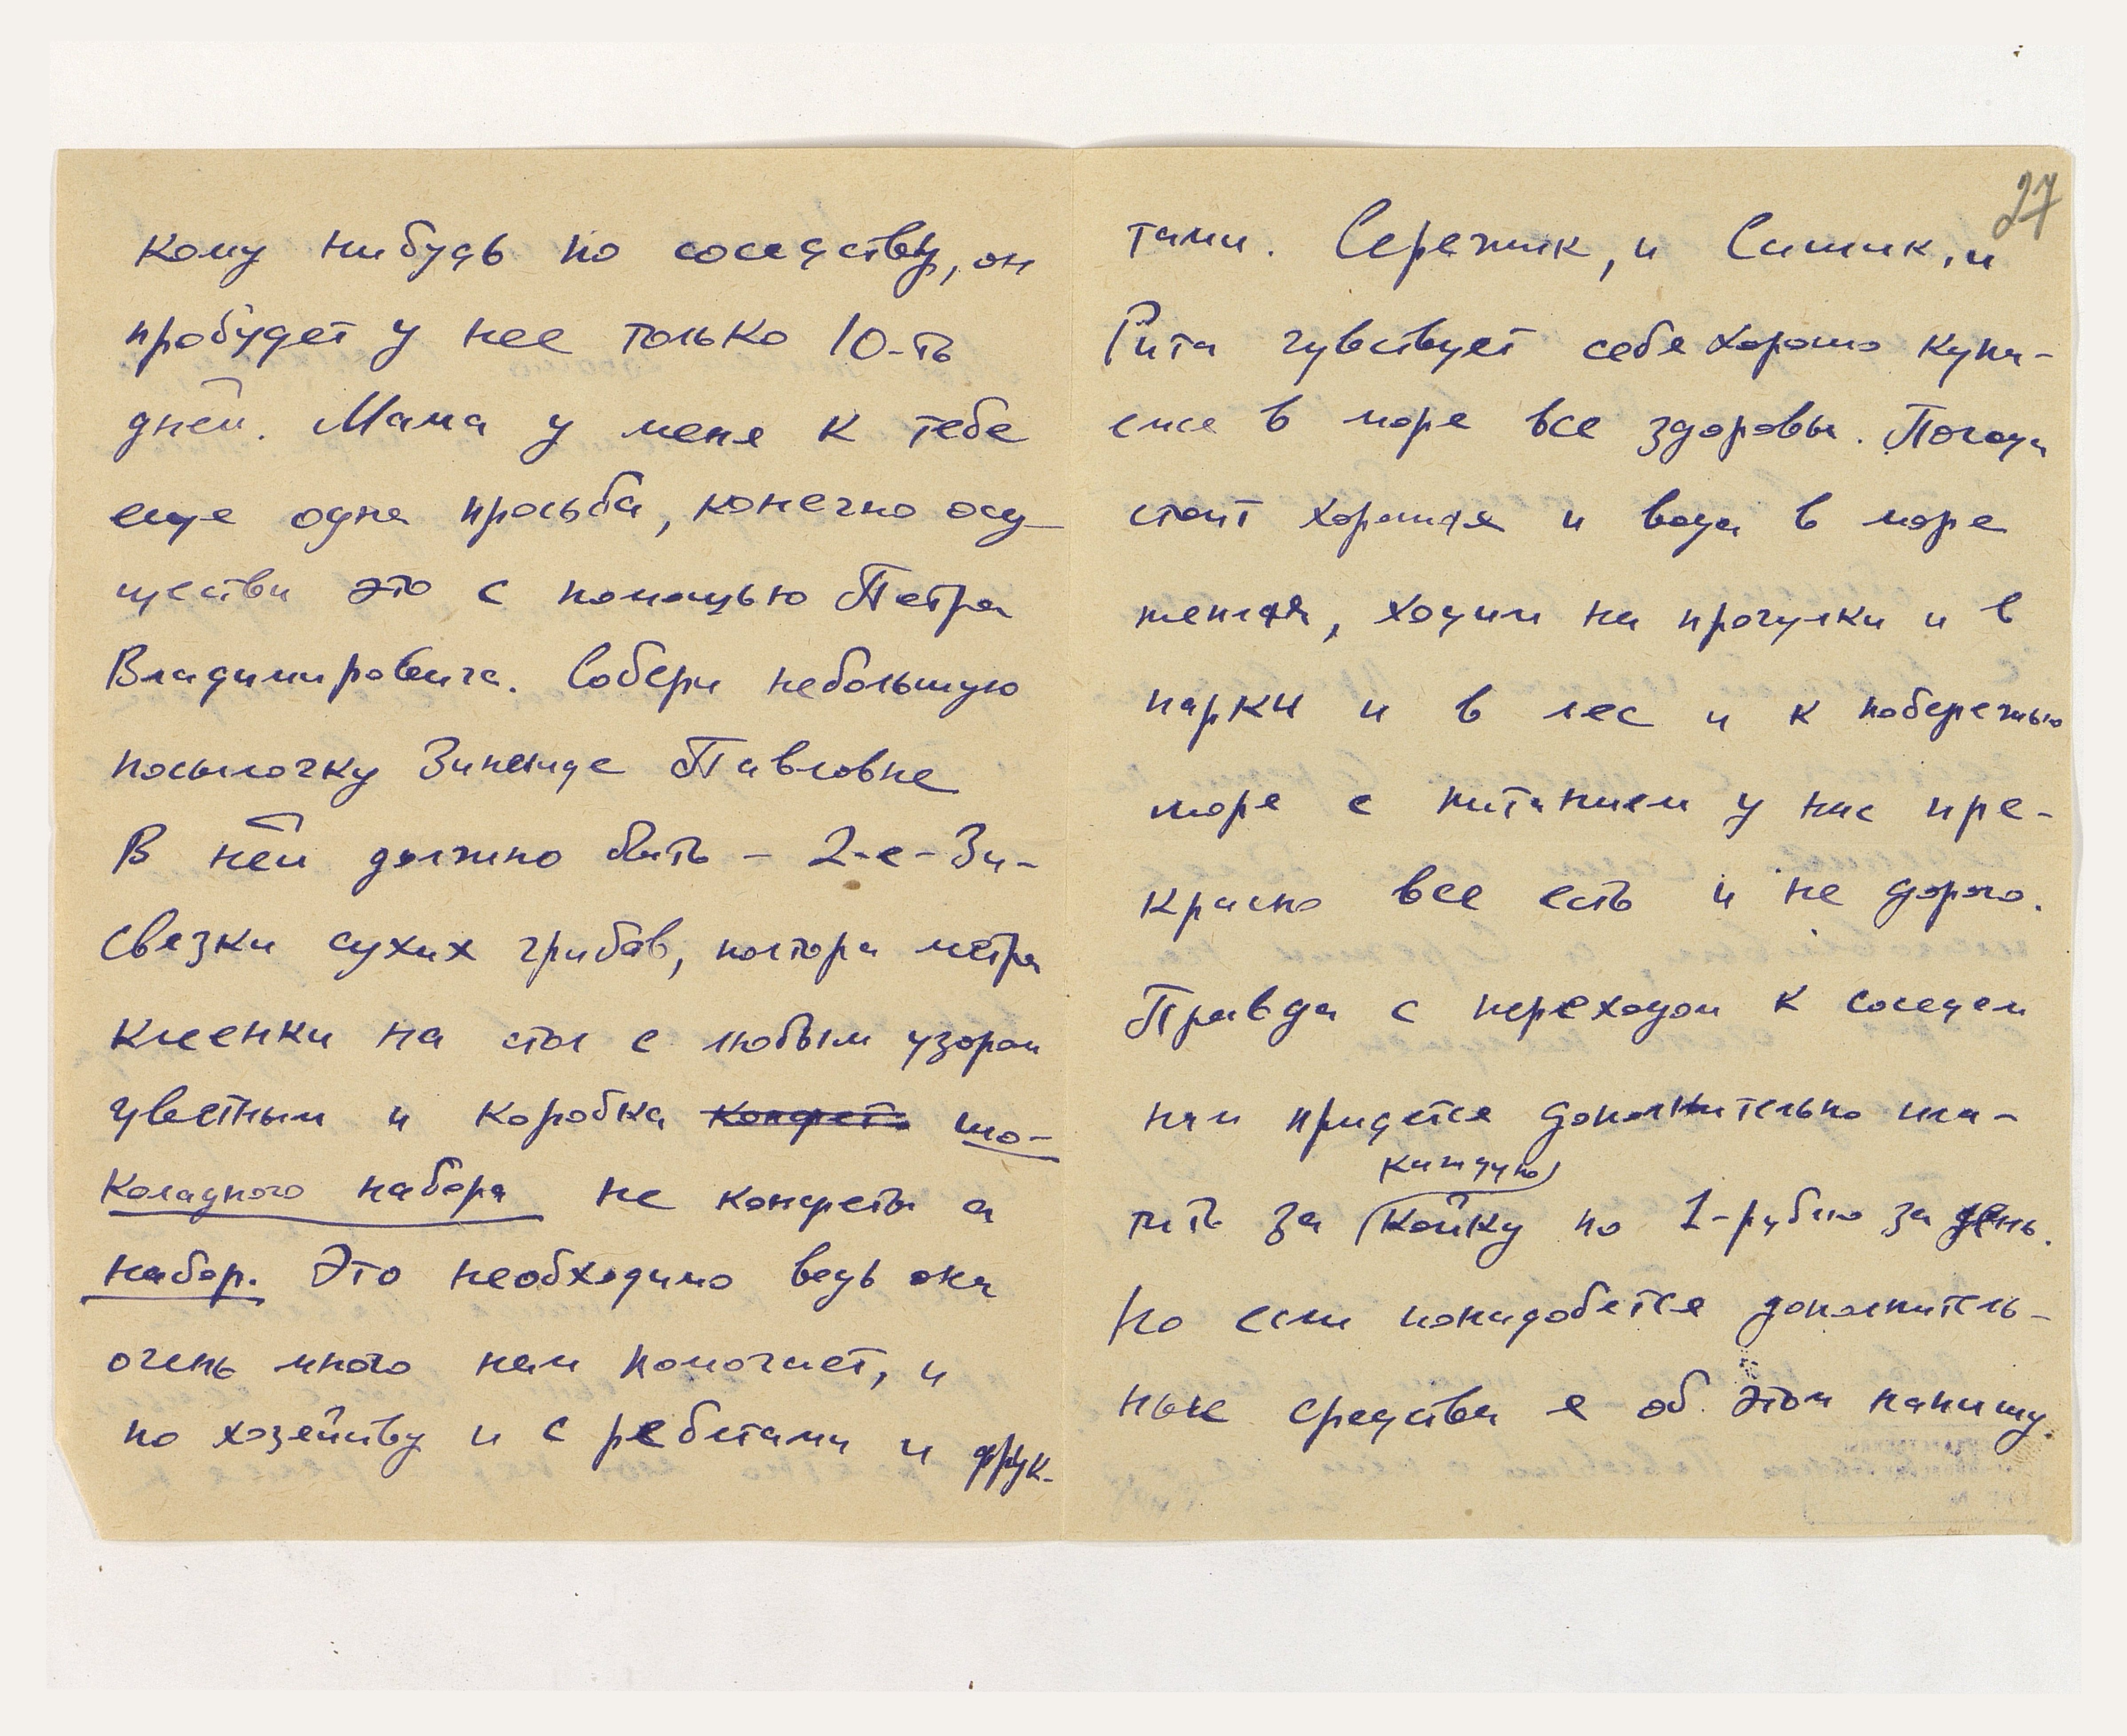 кому нибудь по соседству, он
пробудет у нее только 10-ть
дней. Мама у меня к тебе
еще одна просьба, конечно осу-
ществи это с помощью Петра
Владимировича. Собери небольшую
посылочку Зинаиде Павловне
В ней должно быть – 2-е-3и-
связки сухих грибов, полтора метра
клеенки на стол с любым узором
цветным и коробка конфет. шо-
коладного набора не конфеты а
набор. Это необходимо ведь она
очень много нам помогает, и
по хозяйству и с ребятами и фрук-
27
тами. Сережик, и Симик, и
Рита чувствует себя хорошо купа-
емся в море все здоровы. Погода
стоит хорошая и вода в море
теплая, ходим на прогулки и в
парки и в лес и к побережью
море с питанием у нас пре-
красно все есть и не дорого.
Правда с переходом к соседям
нам придется дополнительно пла-
каждую
тить за койку по 1-рублю за день.
Но если понадобятся дополнитель-
ные средства я об этом напишу.